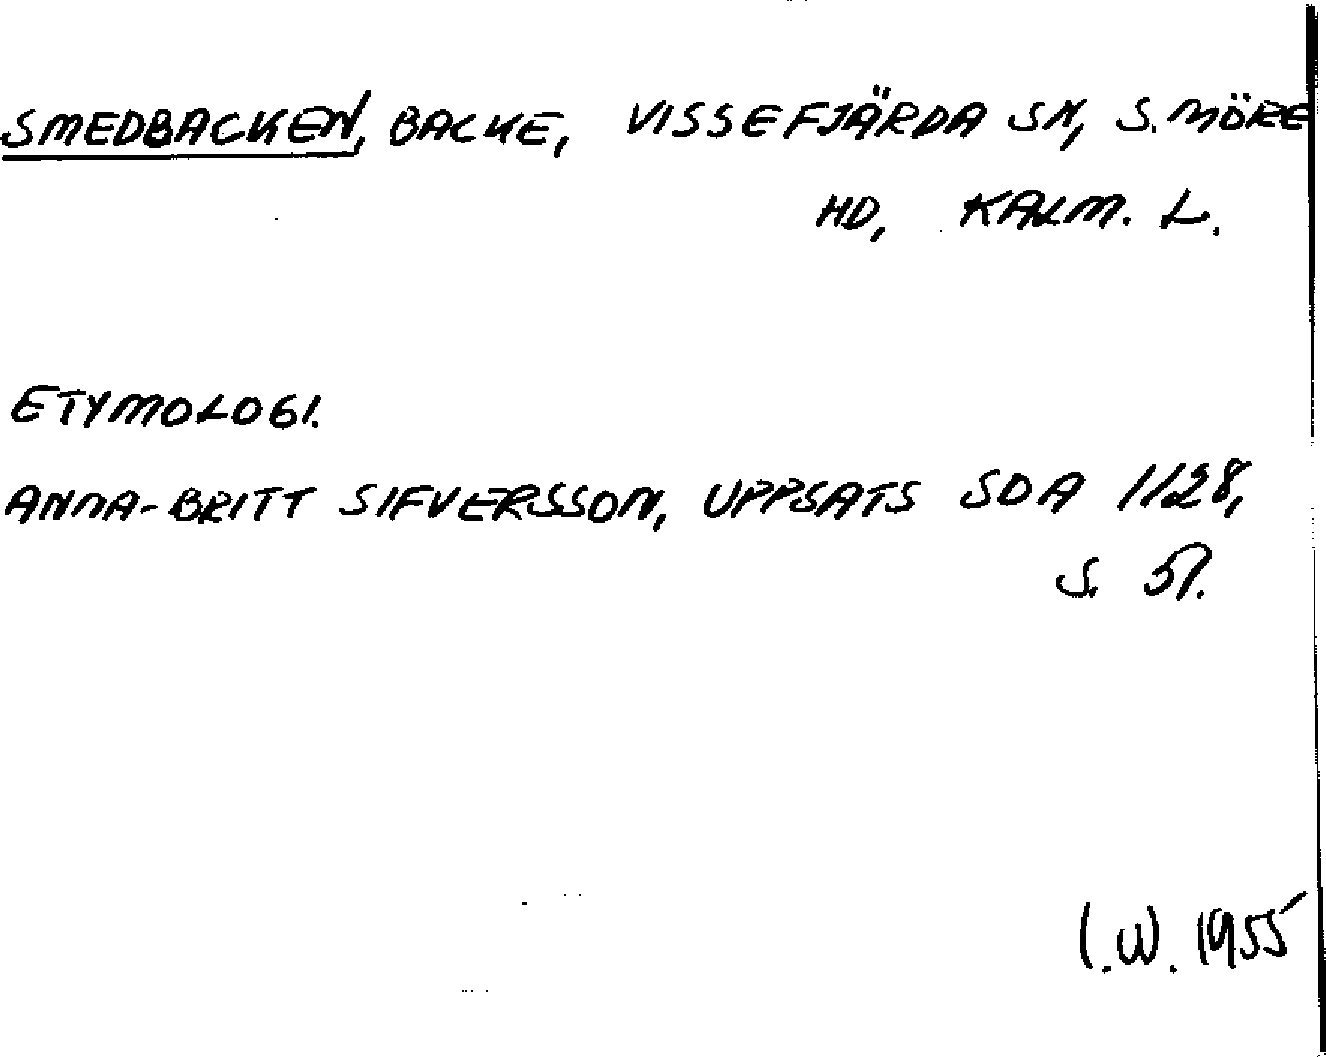 SMEDBACKEN, BACKE, VISSEFJÄRDA SN, S. MÖRE
HD, KALM. L.
ETYMOLOGI.
ANNA-BRITT SIFVERSSON, UPPSATS SDA 1128,
S. 57.
I.W. 1955